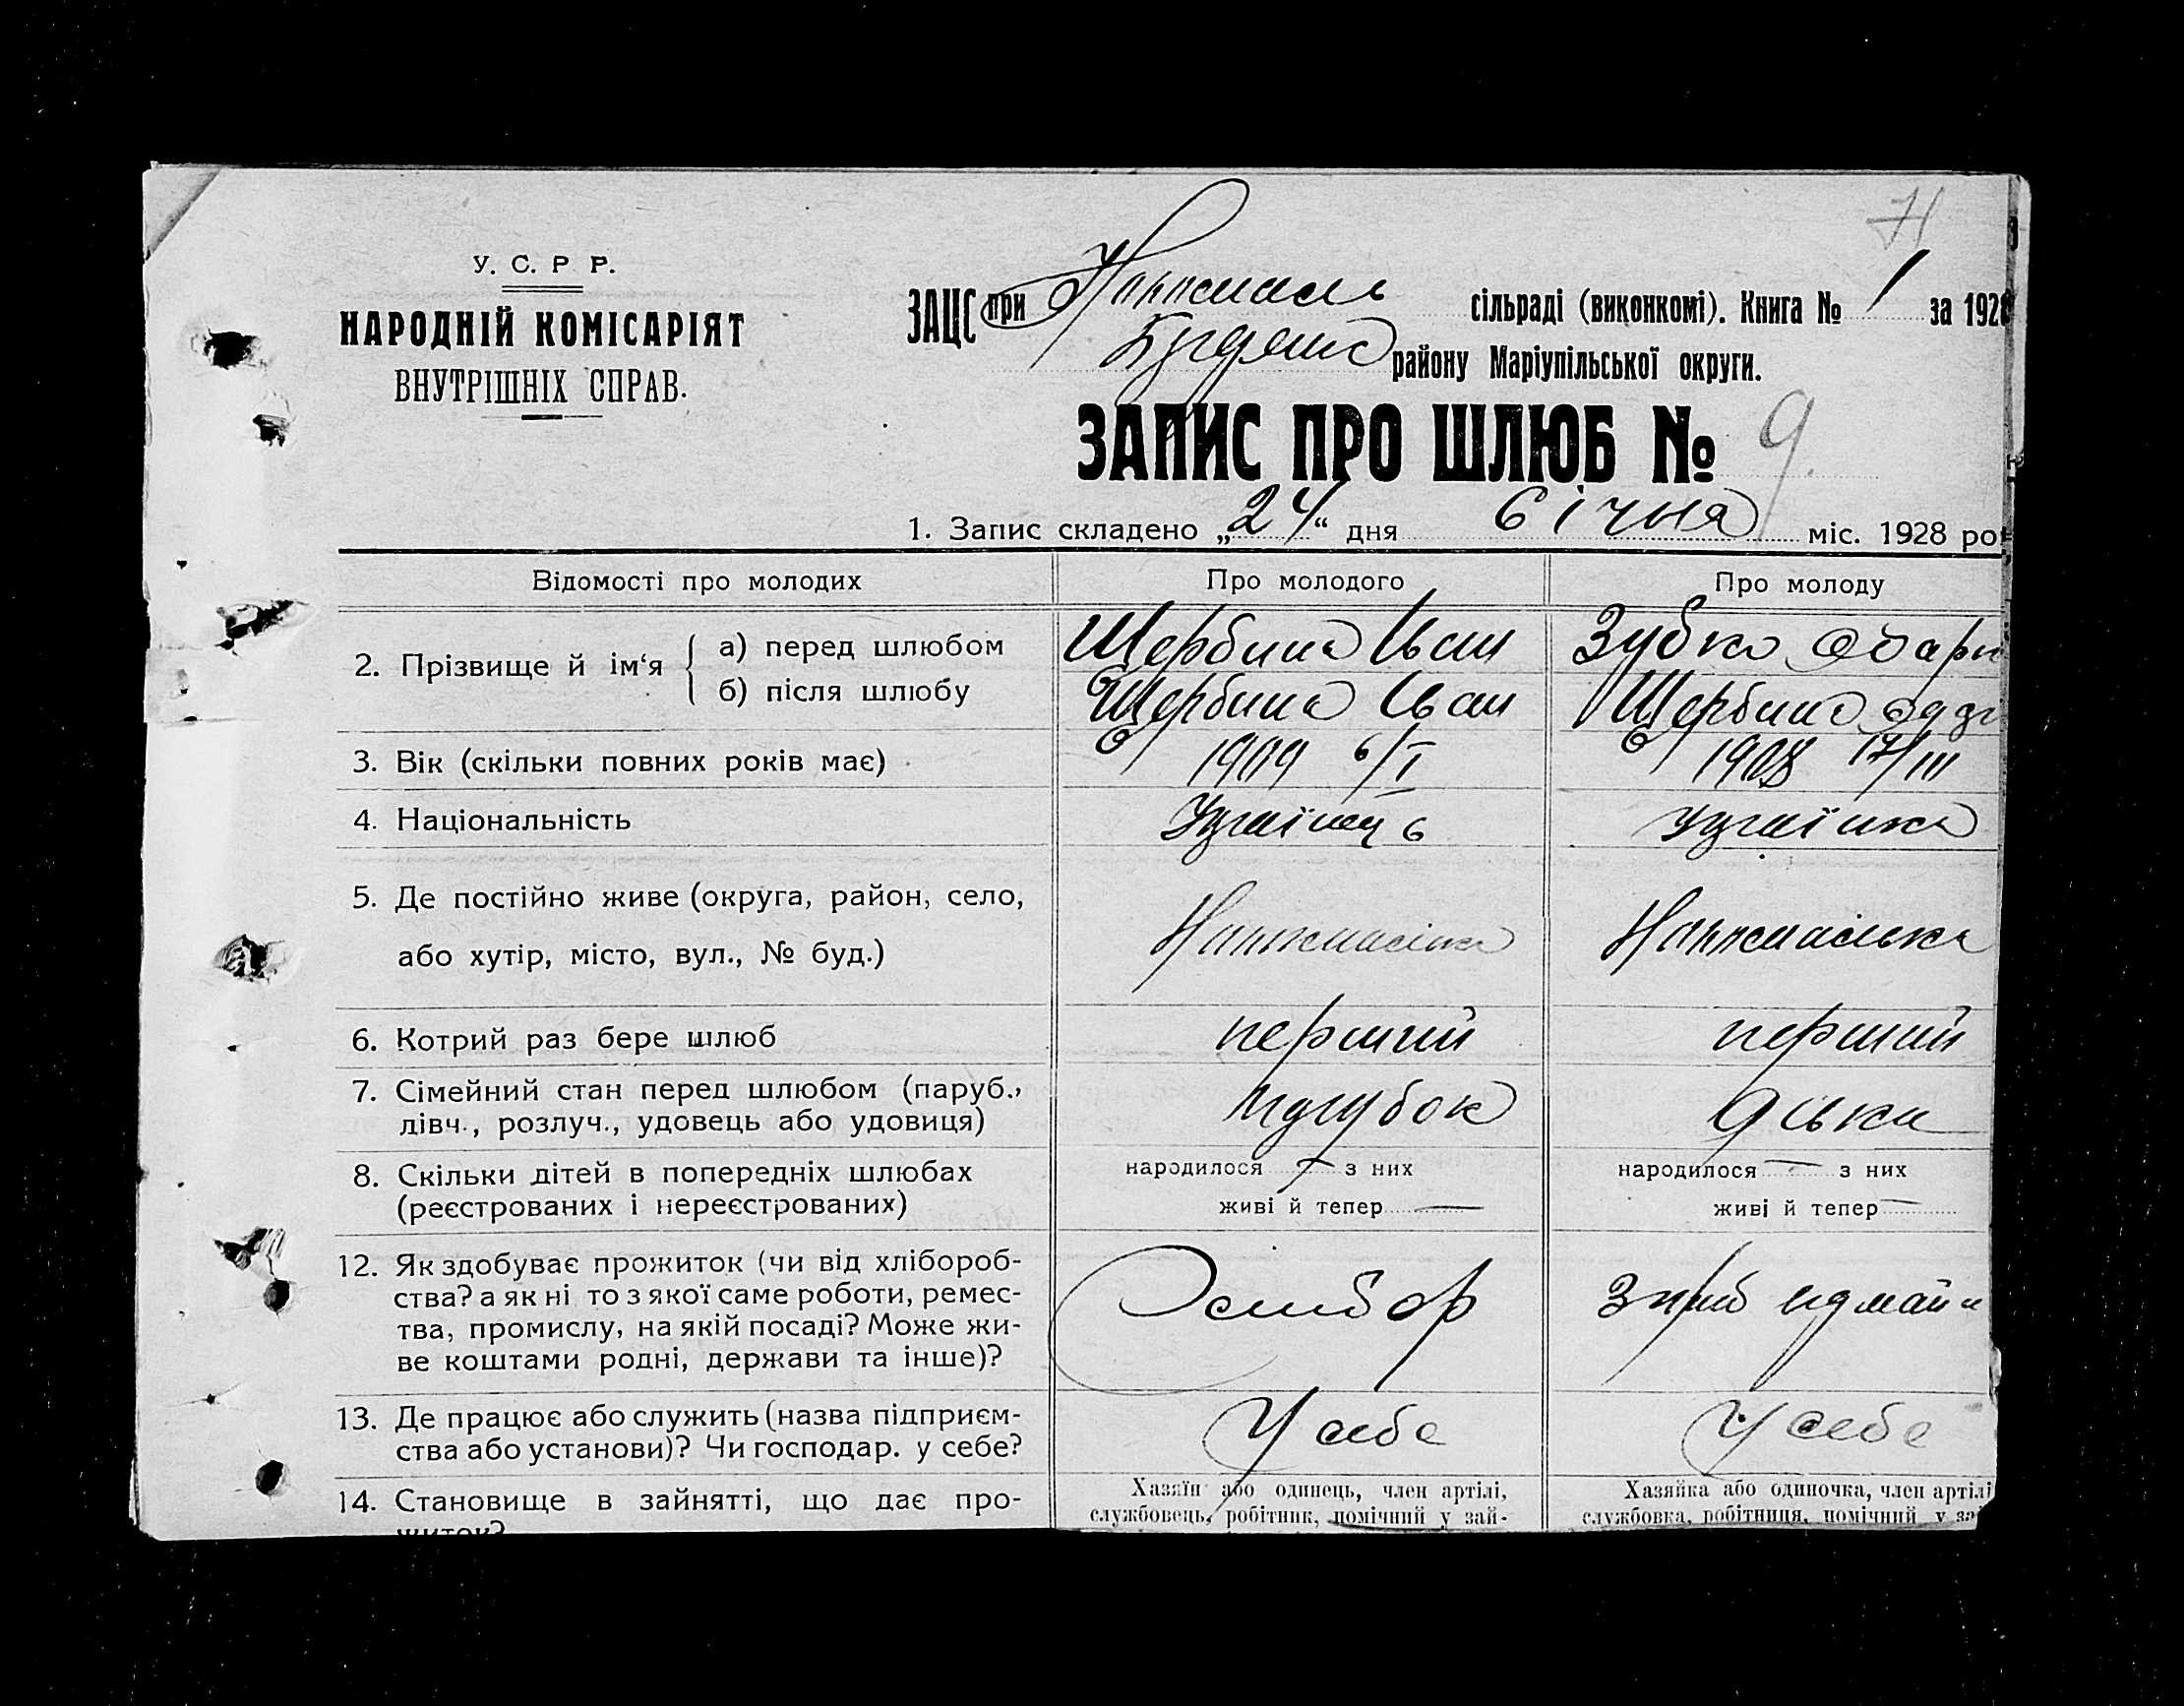 У. С. Р Р.
НАРОДНІЙ КОМІСАРІЯТ
ВНУТРІШНІХ СПРАВ.
71
ЗАЦС при сільраді (виконкомі). Книга № 1 за 192
району Маріупільської округи.
ЗАПИС ПРО ШЛЮБ № 9.
1. Запис складено „24“ дня січня міс. 1928 ро
Відомості про молодих Про молодого Про молоду
2. Прізвище й ім‘я
а) перед шлюбом Щербина Иван Зубко
б) після шлюбу Щербина Иван Щербина
3. Вік (скільки повних років має) 1909 6/I 1908 17/III
4. Національність Українець Українка
5. Де постійно живе (округа, район, село,
або хутір, місто, вул., № буд.)
6. Котрий раз бере шлюб перший перший
7. Сімейний стан перед шлюбом (паруб.,
дівч., розлуч., удовець або удовиця) парубок дівка
8. Скільки дітей в попередніх шлюбах народилося — з них народилося — з них
(реєстрованих і нереєстрованих) живі й тепер — живі й тепер —
12. Як здобуває прожиток (чи від хлібороб-
ства? а як ні то з якої саме роботи, ремес-
тва, промислу, на якій посаді? Може жи-
ве коштами родні, держави та інше)?
13. Де працює або служить (назва підприєм- У себе У себе
ства або установи)? Чи господар. у себе?
14. Становище в зайнятті, що дає про- Хазяїн або одинець, член артілі, Хазяйка або одиночка, член артілі
житок? службовець, робітник, помічний у зай- службовка, робітниця, помічний у за